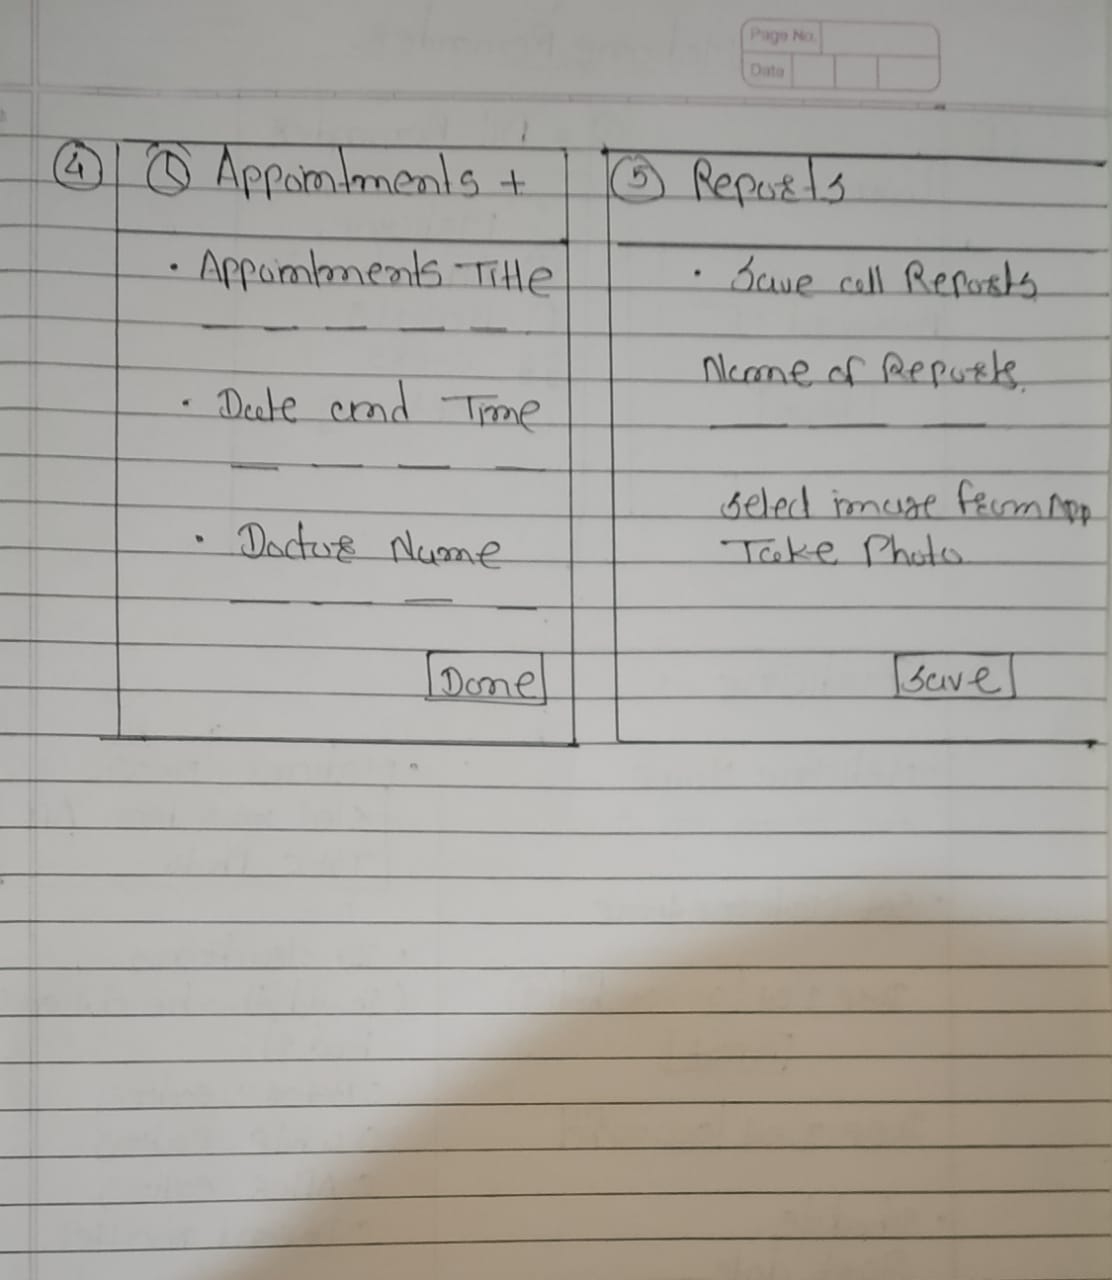 Page No.
Date
④ ① Appointments +
• Appointments Title
• Date and Time
• Doctor Name
Done
⑤ Reports
• Save all Reports
Name of Reports.
Select image from App
Take Photo
Save